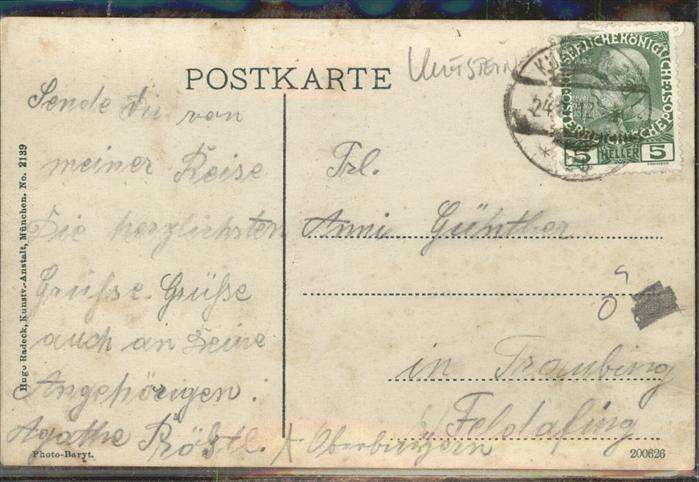 POSTKARTE
Kufstein
KAISERLICHE KÖNIGLICHE
5 HELLER 5
Sende Dir von
meiner Reise
Die herzlichsten
Grüsse. Grüße
auch an Deine
Angehörigen.
Agathe
Frl.
Anni Günther
in Traubing
Feldafing
Oberbayern
Hugo Radeck, Kunstv.-Anstalt, München. No. 2139
Photo-Baryt.
200626